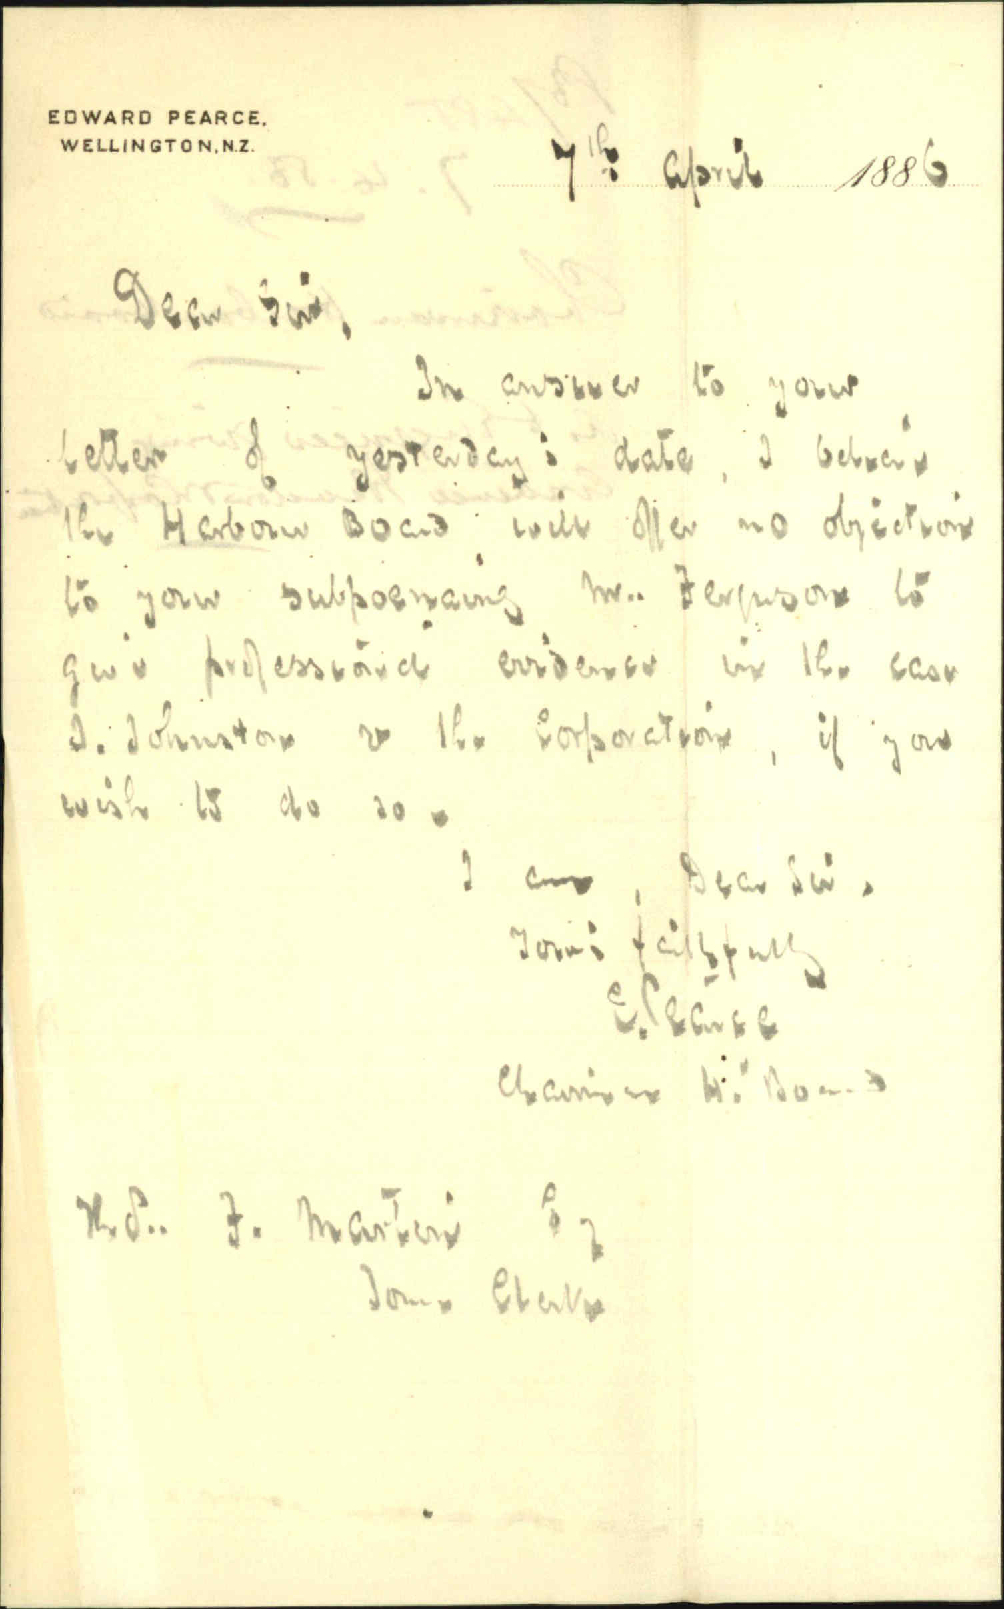 EDWARD PEARCE,
WELLINGTON, N.Z.
7th April 1886
Dear Sir,
In answer to your
letter of yesterday's date, I believe
the Harbour Board will offer no objection
to your subpoenaing Mr. Ferguson to
give professional evidence in the case
J. Johnston v the Corporation, if you
wish to do so.
I am, Dear Sir,
Yours faithfully
E. Pearce
Chairman H. Board
F. Martin Esq
Town Clerk